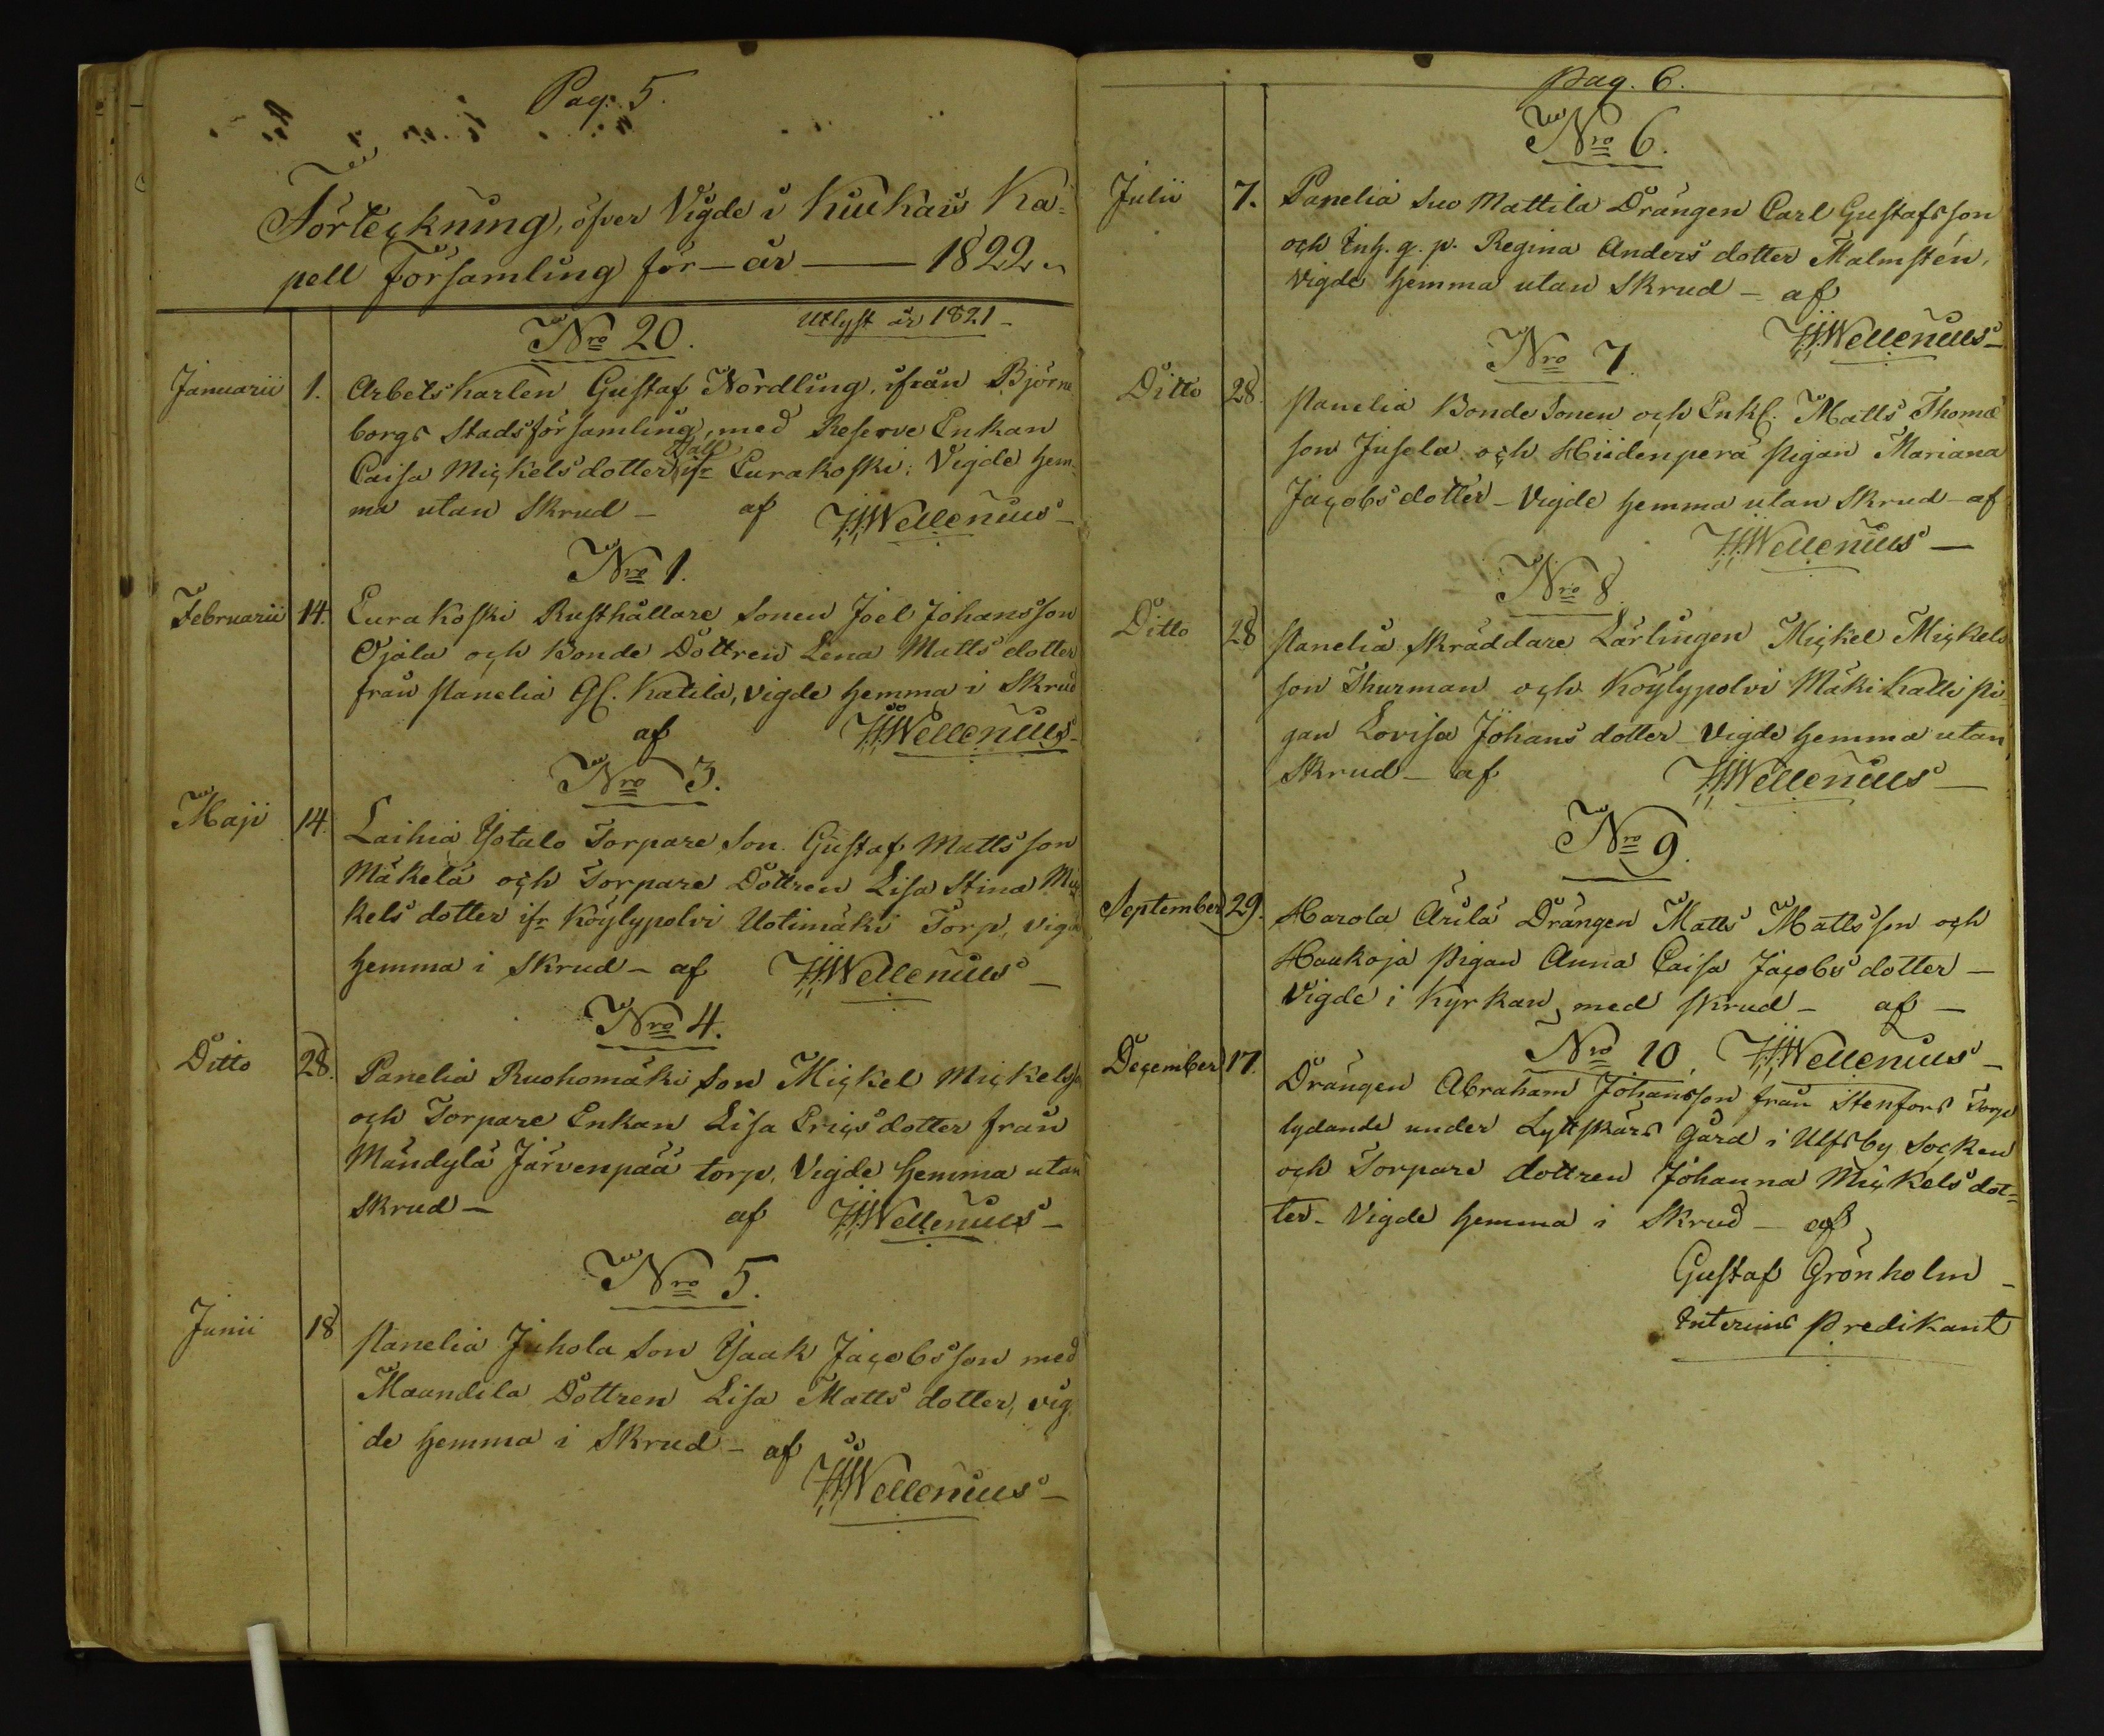 Pag. 5.
Förteckning, öfver Vigde i Kiukais Ka-
pell Församling för — år — 1822.
Utlyst år 1821 —
Nro 20.
Januarii 1. Arbetskarlen Gustaf Nordling, ifrån Björne
borgs Stadsförsamling, med Reserve Enkan
Caisa Mickelsdotter ifr Eurakoski; Vigde hem-
ma utan Skrud — af HWellenius —
Nro 1.
Februarii 14. Eurakoski Rusthållare Sonen Joel Johansson
Ojala och Bonde Dottren Lena Mattsdotter
från Panelia Gl. Katila, vigde hemma i Skrud
af HWellenius —
Nro 3.
Maji 14. Laihia Ysotalo Torpare Son Gustaf Mattsson
Mäkelä och Torpare Dottren Lisa Stina Mic
kels dotter ifr Köylypolvi Uotimäki Torp, vigd
hemma i Skrud — af HWellenius —
Nro 4.
Ditto 28. Panelia Ruohomäki Son Mickel Mickelsson
och Torpare Enkan Lisa Ericsdotter från
Mändylä Järvenpää torp, Vigde hemma utan
Skrud — af HWellenius —
Nro 5.
Junii 18 Panelia Juhola Son Ysaak Jacobsson med
Maundila Dottren Lisa Matts dotter, vig
de hemma i Skrud — af
HWellenius —
Pag. 6.
Nro 6.
Julii 7. Panelia Suo Mattila Drängen Carl Gustafsson
och Inh. q. p. Regina Anders dotter Malmstén,
Vigde hemma utan Skrud — af
HWellenius —
Nro 7.
Ditto 28. Panelia Bonde Sonen och Enkl. Matts Thomæ
son Jusela och Hiidenperä Pigan Mariana
Jacobsdotter — Vigde hemma utan Skrud — af
HWellenius —
Nro 8
Ditto 28 Panelia Skräddare Lärlingen Mickel Mickels
son Thurman och Köylypolvi Mäkikalli Pi
gan Lovisa Johans dotter — Vigde hemma utan
Skrud — af HWellenius —
Nro 9.
September 29. Harola Arila Drängen Matts Mattsson och
Haukoja Pigan Anna Caisa Jacobs dotter —
Vigde i Kyrkan, med skrud — af —
Nro 10. HWellenius —
December 17. Drängen Abraham Johansson från Stenfors Torp
lydande under Lyttskärs Gård i Ulfsby Socken
och Torpare dottren Johanna Mickels dot-
ter — Vigde hemma i Skrud — af
Gustaf Grönholm —
Interims Predikant